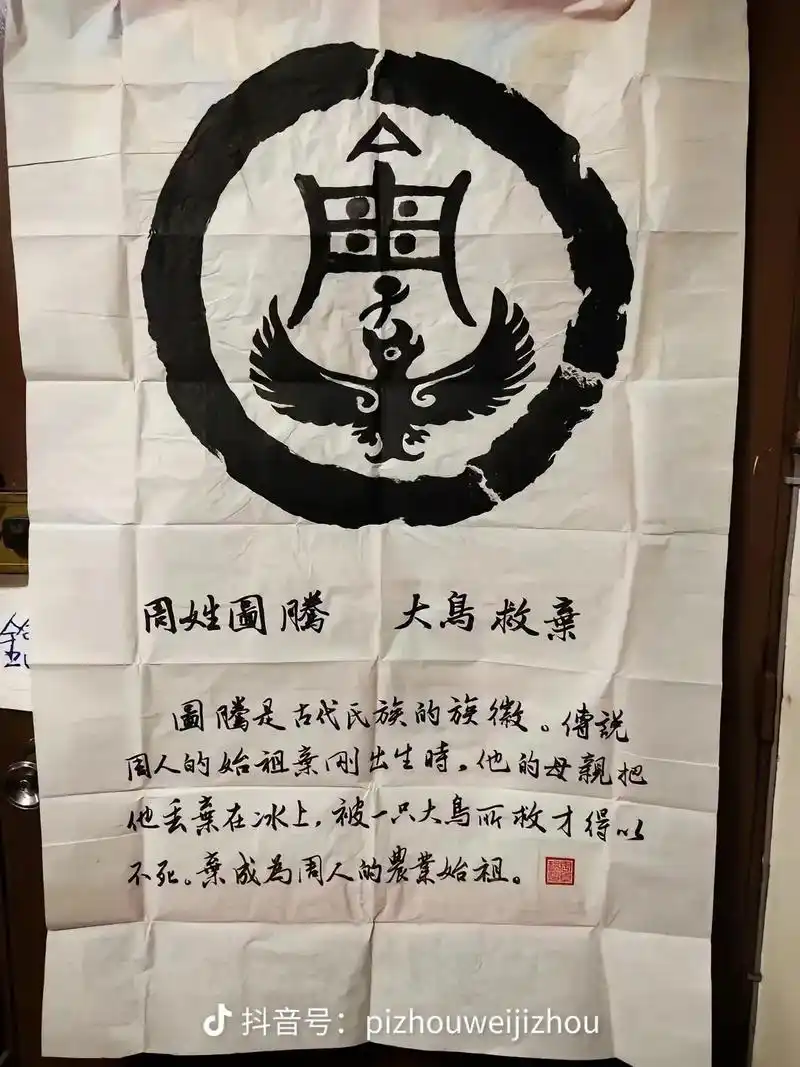 周姓圖騰 大鳥救棄
圖騰是古代氏族的族徽。傳說
周人的始祖棄剛出生時，他的母親把
他丢棄在冰上，被一只大鳥所救才得以
不死。棄成為周人的農業始祖。
抖音号：pizhouweijizhou